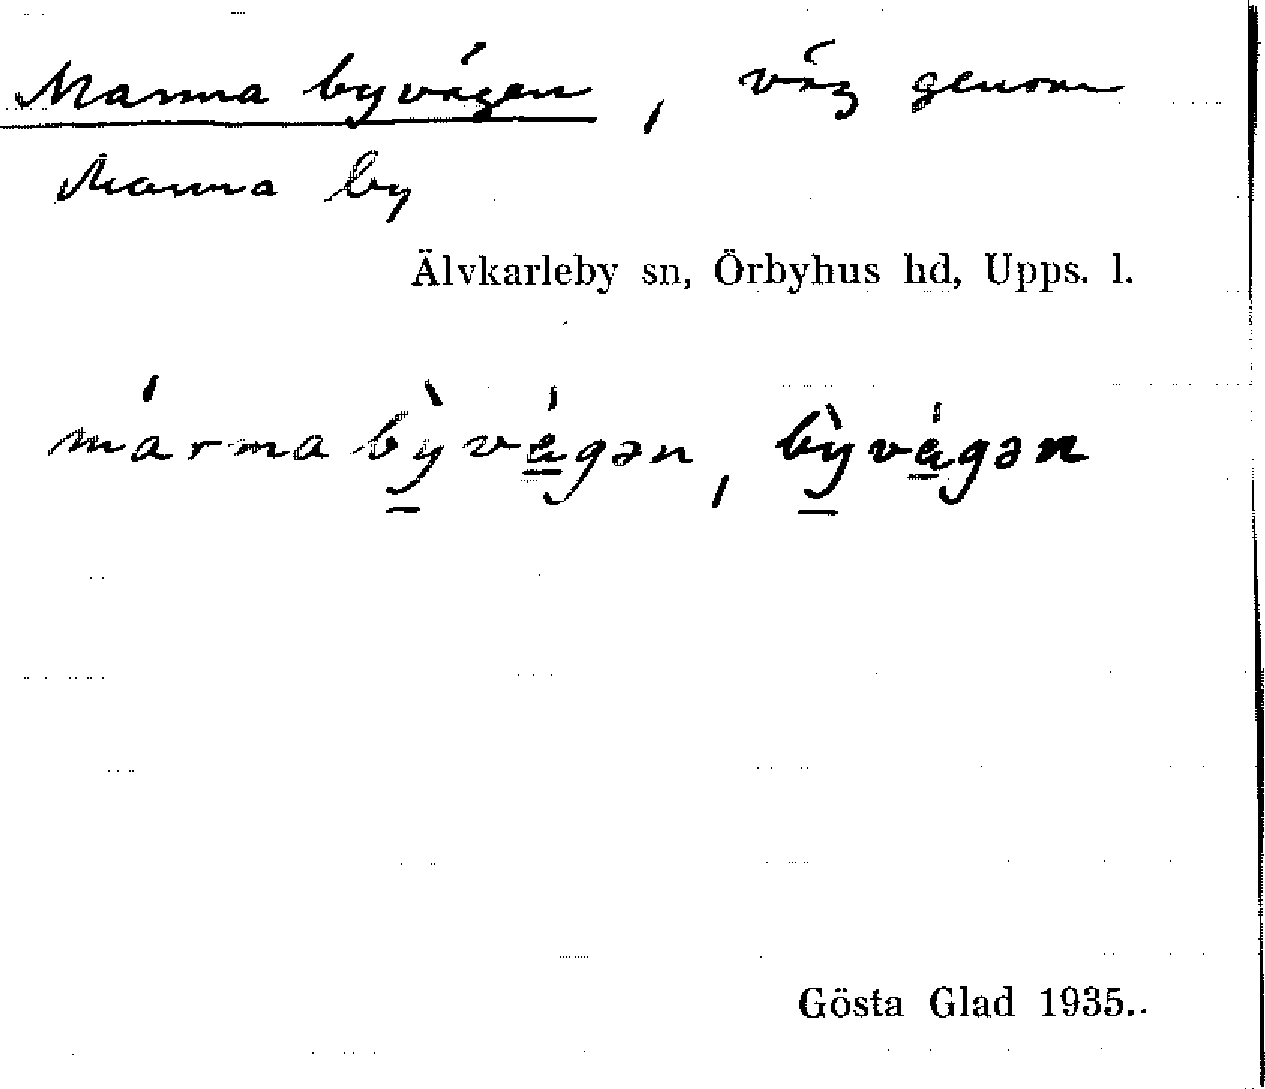 Marma byvägen, väg genom
Marma by
Älvkarleby sn, Örbyhus hd, Upps. l.
márma bỳ̠vá̠gən, bỳ̠vá̠gən
Gösta Glad 1935.